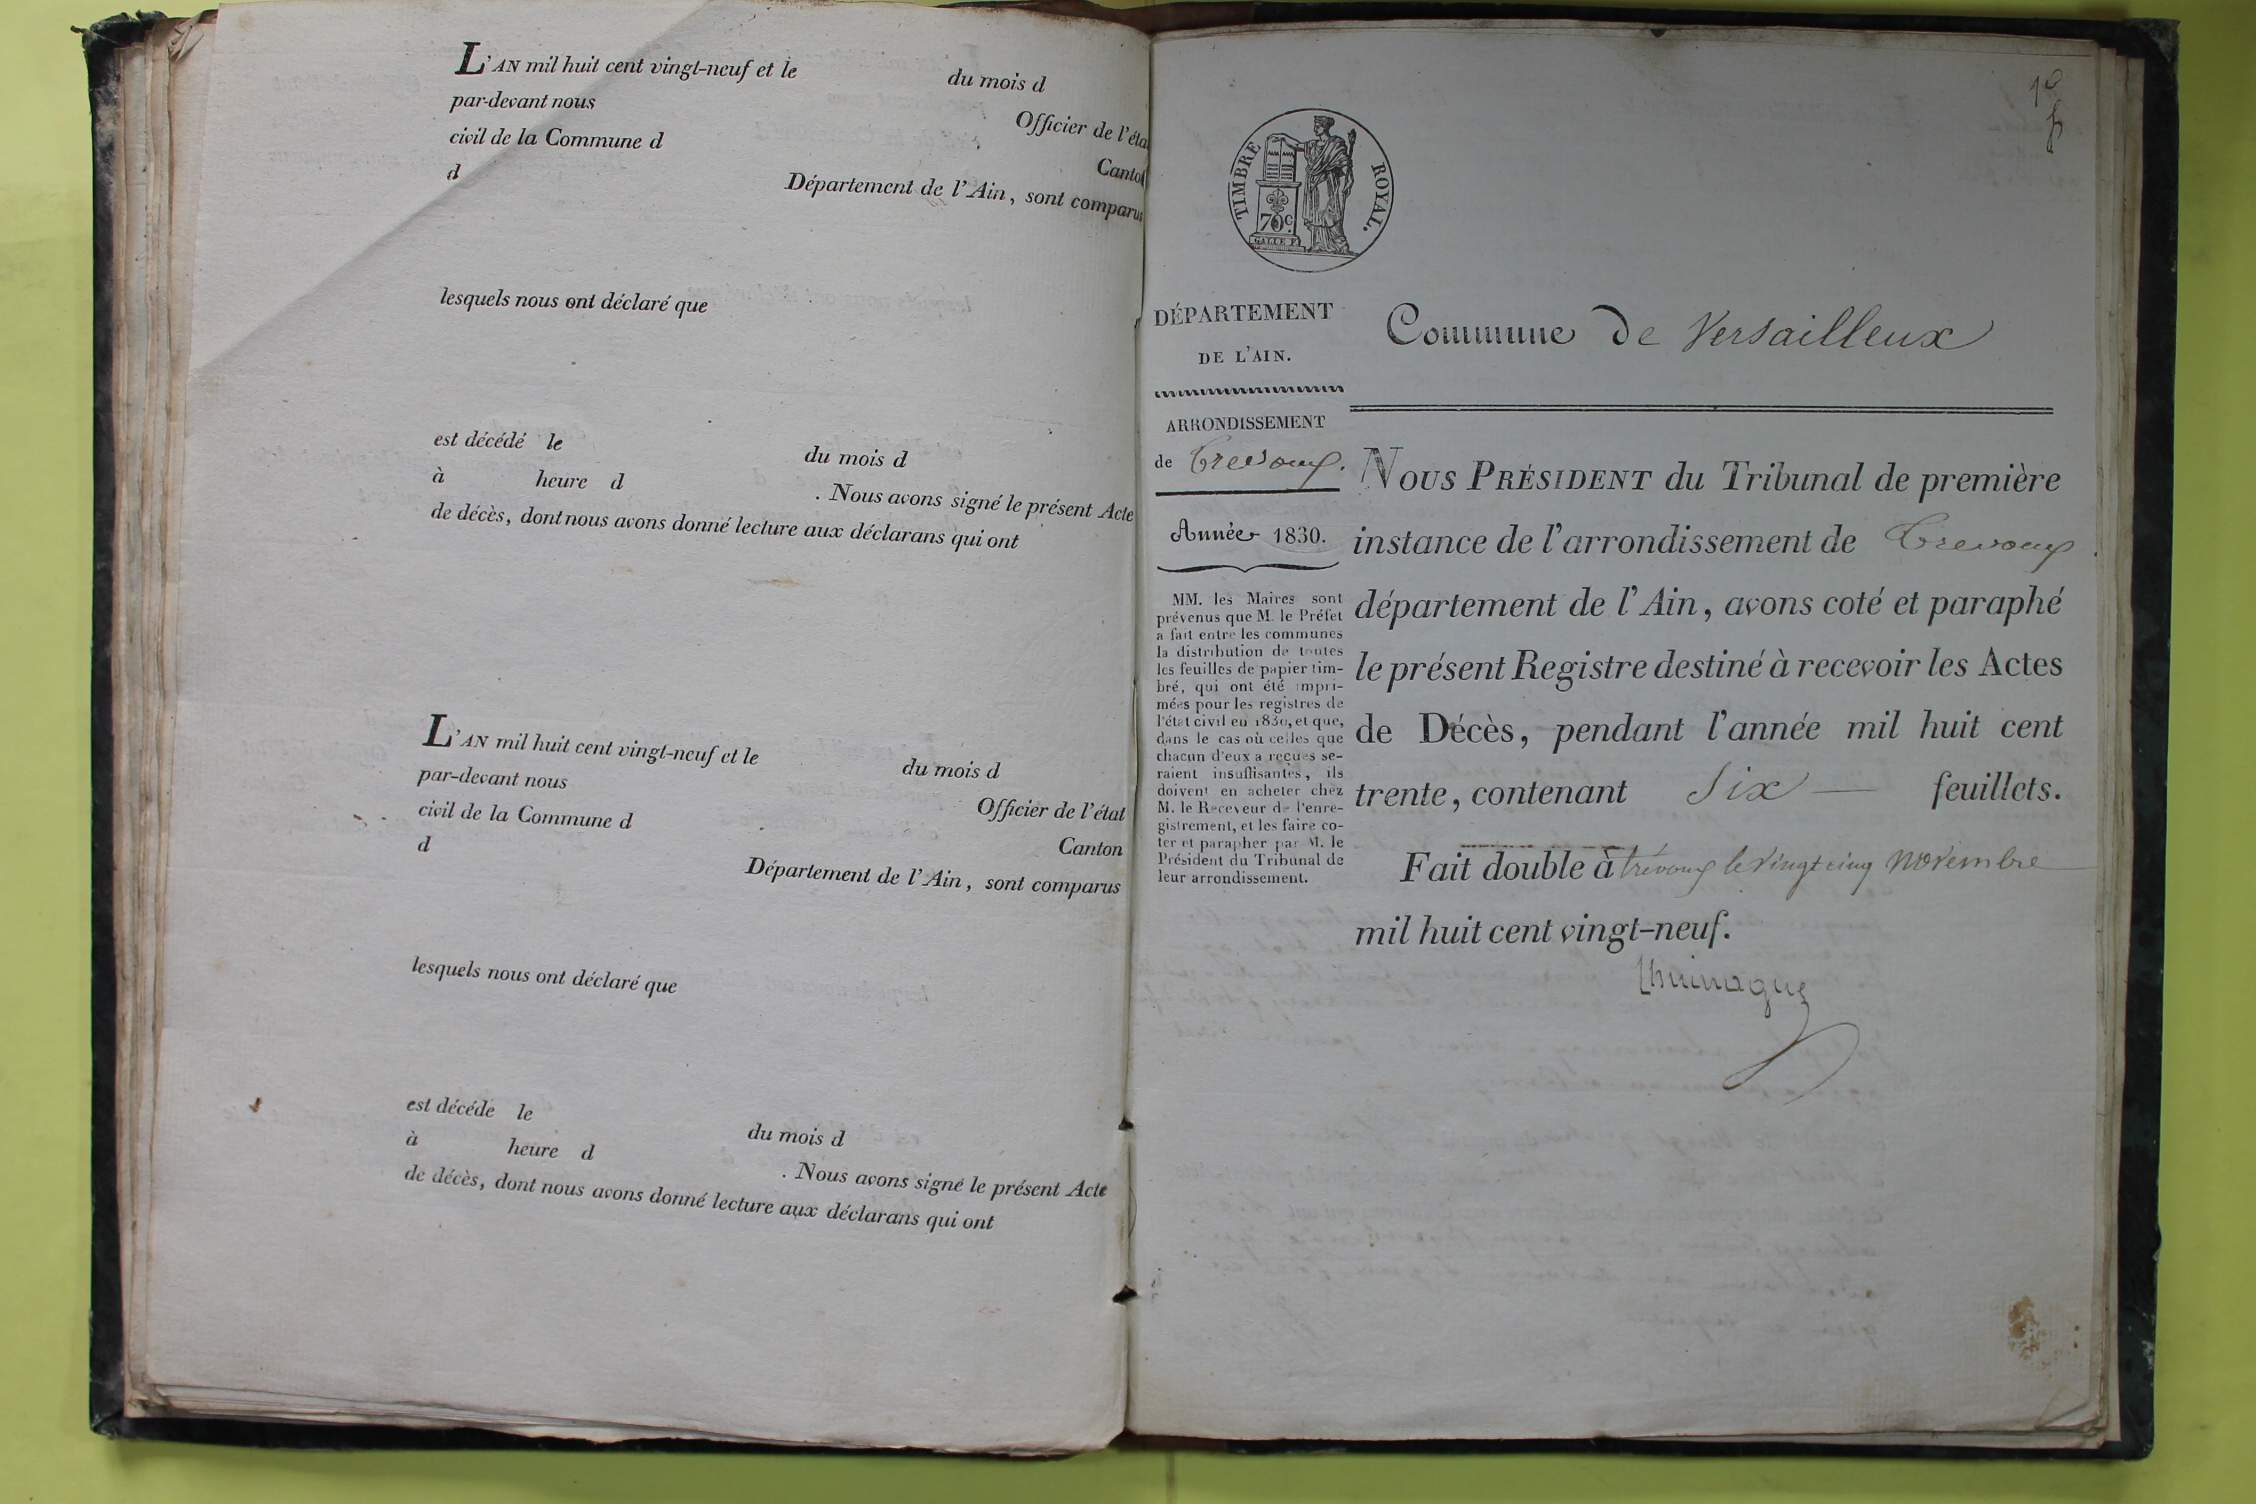 L'AN mil huit cent vingt-neuf et le du mois d
par-devant nous Officier de l'éta
civil de la Commune d Canton
d Département de l'Ain, sont comparus
lesquels nous ont déclaré que
est décédé le du mois d
à heure d . Nous avons signé le présent Acte
de décès, dont nous avons donné lecture aux déclarans qui ont
L'AN mil huit cent vingt-neuf et le du mois d
par-devant nous Officier de l'état
civil de la Commune d Canton
d Département de l'Ain, sont comparus
lesquels nous ont déclaré que
est décédé le du mois d
à heure d . Nous avons signé le présent Acte
de décès, dont nous avons donné lecture aux déclarans qui ont
TIMBRE ROYAL.
70 c.
GALLE F.
DÉPARTEMENT
DE L'AIN.
ARRONDISSEMENT
de Trevoux.
Année 1830.
MM. les Maires sont
prévenus que M. le Préfet
a fait entre les communes
la distribution de toutes
les feuilles de papier tim-
bré, qui ont été impri-
mées pour les registres de
l'état civil en 1830, et que,
dans le cas où celles que
chacun d'eux a reçues se-
raient insuffisantes, ils
doivent en acheter chez
M. le Receveur de l'enre-
gistrement, et les faire co-
ter et parapher par M. le
Président du Tribunal de
leur arrondissement.
Commune de Versailleux
NOUS PRÉSIDENT du Tribunal de première
instance de l'arrondissement de Trevoux
département de l'Ain, avons coté et paraphé
le présent Registre destiné à recevoir les Actes
de Décès, pendant l'année mil huit cent
trente, contenant Six feuillets.
Fait double à trévoux le vingt cinq novembre
mil huit cent vingt-neuf.